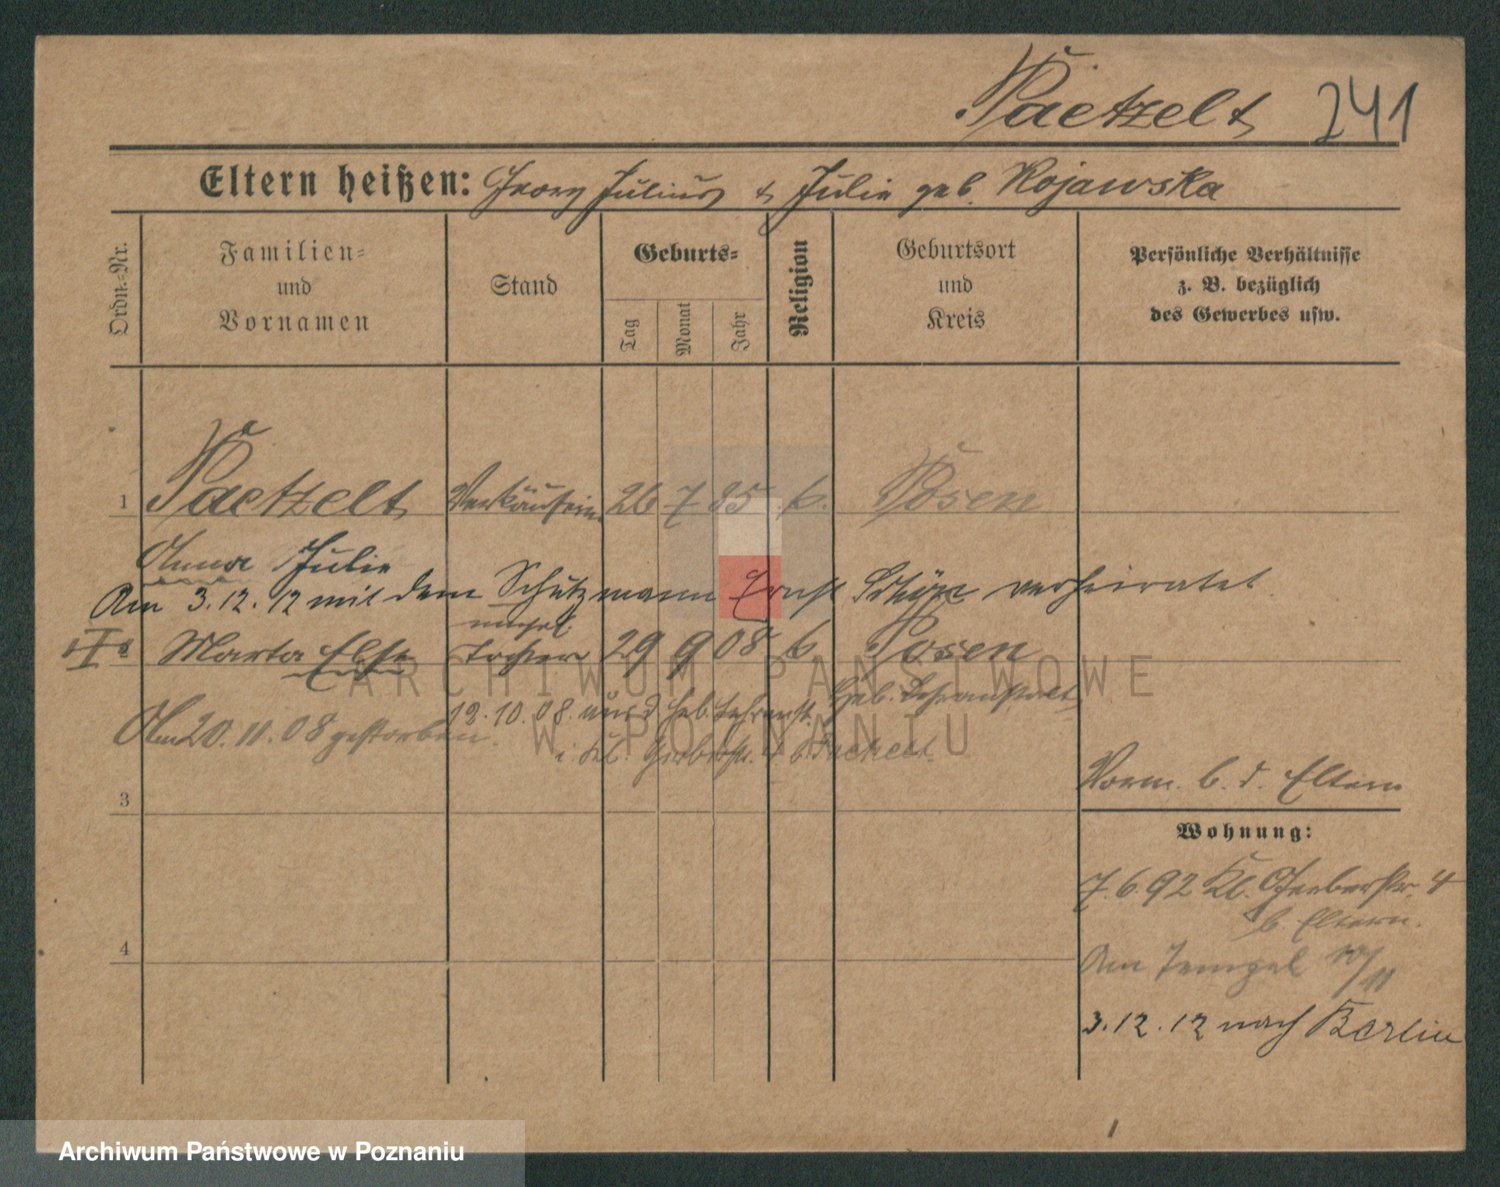 Paetzelt 241
Eltern heißen: Georg Julius & Julie geb. Rojawska
Ordn.-Nr.
Familien-
und
Vornamen
Stand
Geburts-
Tag
Monat
Jahr
Religion
Geburtsort
und
Kreis
Persönliche Verhältnisse
z. B. bezüglich
des Gewerbes usw.
1 Paetzelt Verkäuferin 26 7 85 k. Posen
Anna Julie
Am 3.12.12 mit dem Schutzmann Ernst verheiratet
Marta Else unehel. Tochter 29 9 08 k. Posen
Heb. Lehranstalt
12.10.08. aus d. Heb. Lehranst.
Am 20.11.08 gestorben.
i. Kl. Gerberstr. 4 b.
3
Vorm. b. d. Eltern
Wohnung:
7.6.92 Kl. Gerberstr. 4
b. Eltern.
4
Am Tempel 10/11
3.12.12 nach Berlin
ARCHIWUM PAŃSTWOWE
W POZNANIU
Archiwum Państwowe w Poznaniu